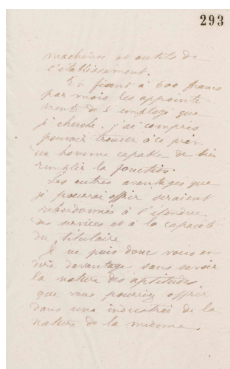 293
machines et outils de
l'établissement.
En fixant à 600 francs
par mois les appointe
ments de l'employé que
je cherche, j'ai compris
pouvoir trouver à ce prix
un homme capable de bien
remplir la fonction.
Les autres avantages que
je pourrai offrir seraient
subordonnés à l'étendue
des services et à la capacité
du titulaire.
Je ne puis donc vous en
dire davantage sans savoir
la nature des aptitudes
que vous pourriez offrir
dans une industrie de la
nature de la mienne.